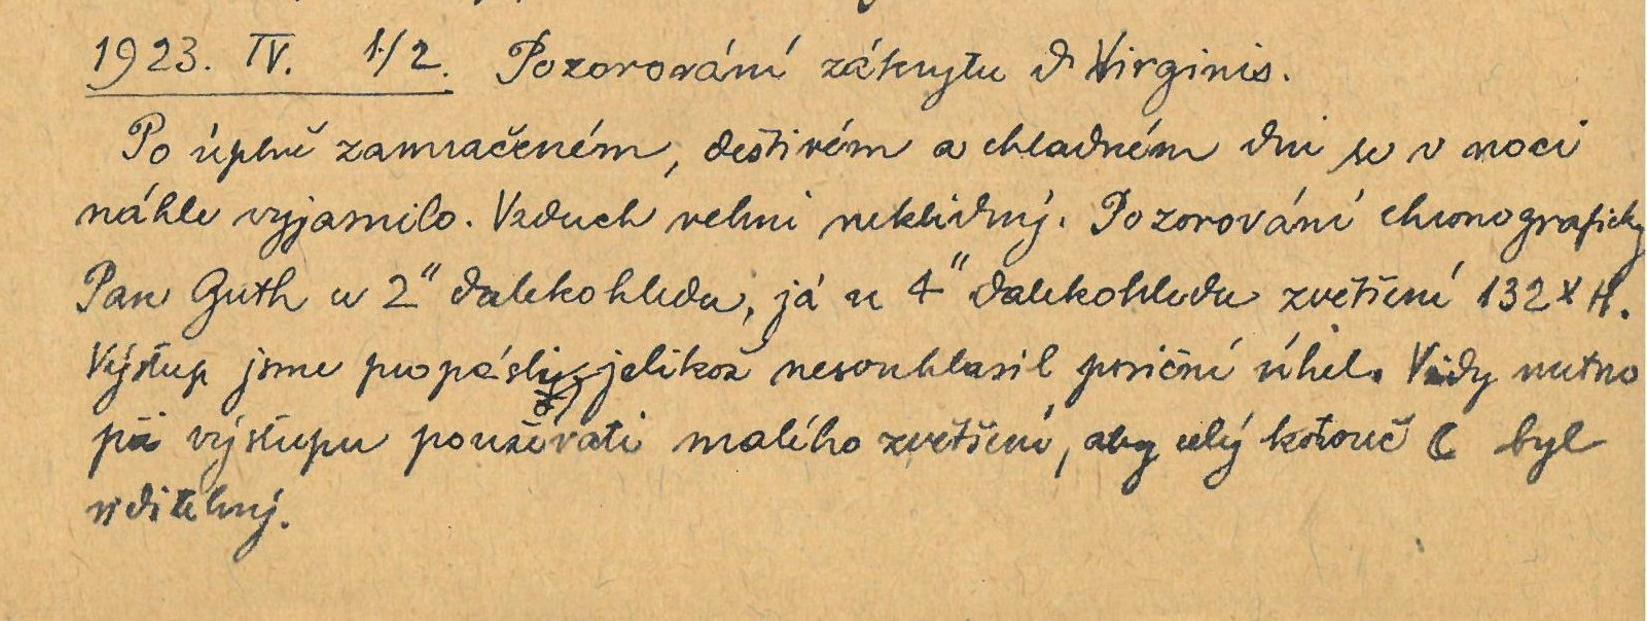 1923. IV. 1./2. Pozorování zákrytu ϑ Virginis.
Po úplně zamračeném, deštivém a chladném dni se v noci
náhle vyjasnilo. Vzduch velmi neklidný. Pozorování chronograficky
Pan Guth u 2" dalekohledu, já u 4" dalekohledu zvětšení 132× H.
Výstup jsme propásli, jelikož nesouhlasil posiční úhel. Vždy nutno
při výstupu použivati malého zvětšení, aby celý kotouč ☾ byl
viditelný.